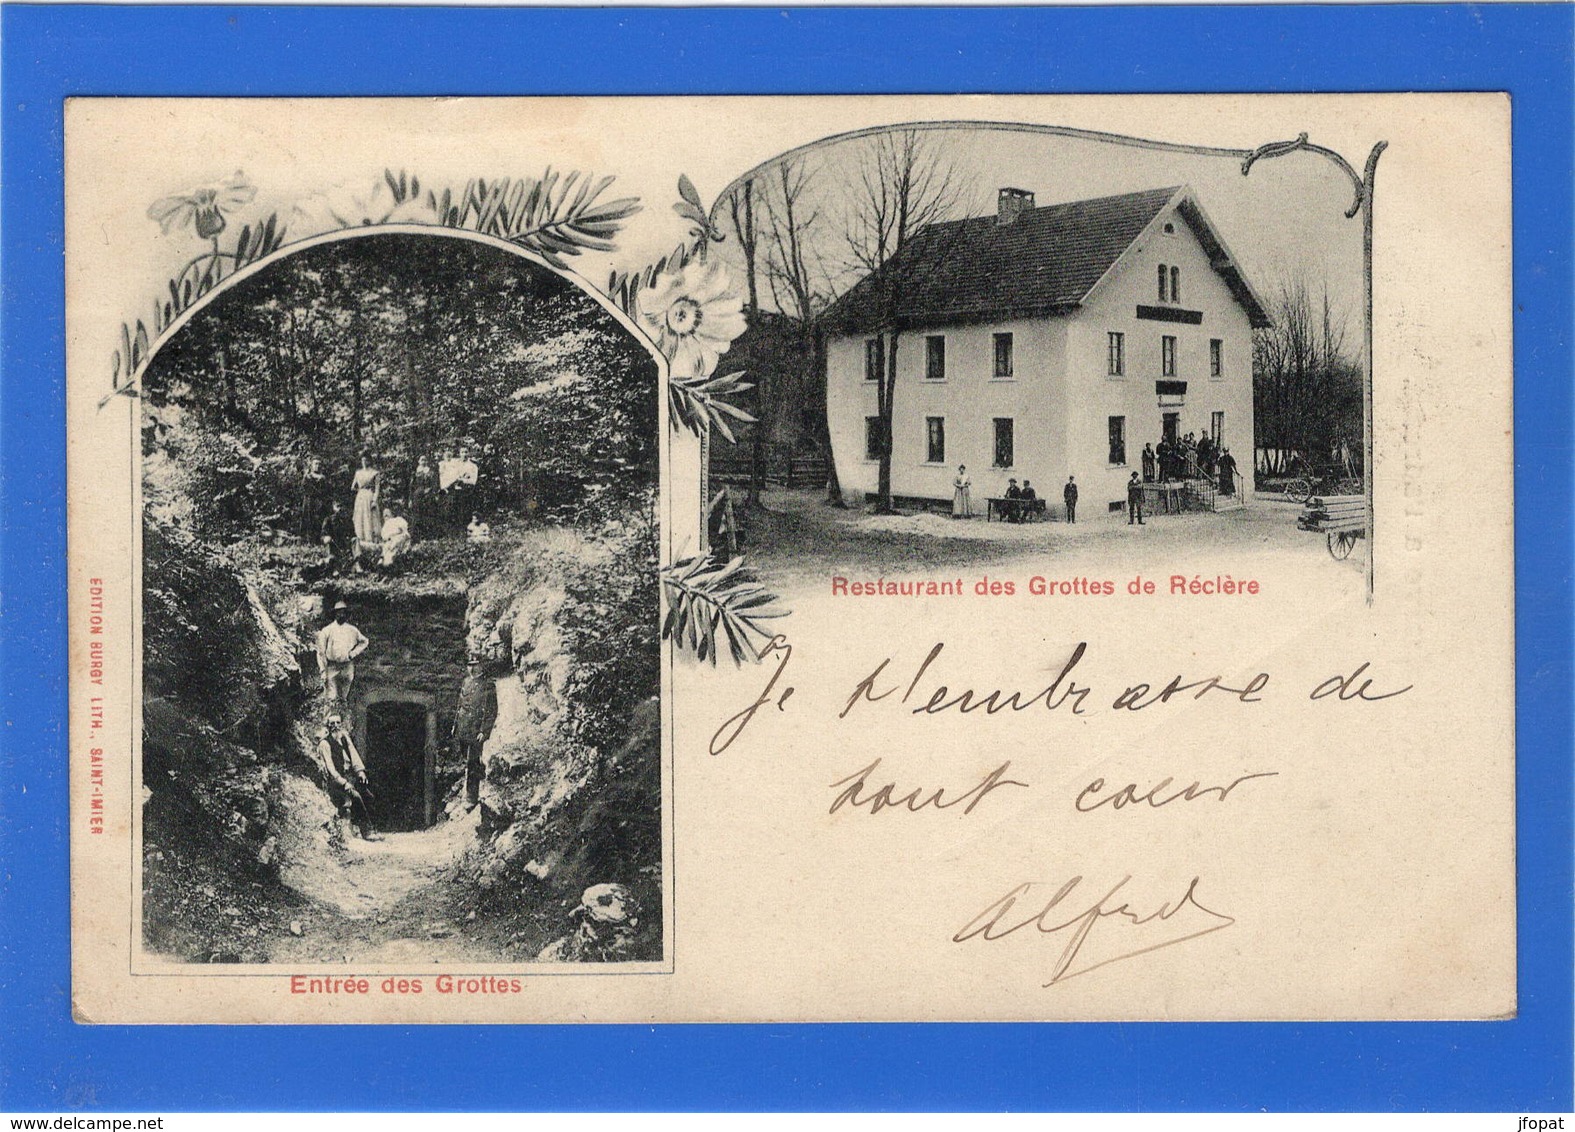 EDITION BURGY LITH., SAINT-IMIER
Entrée des Grottes
Restaurant des Grottes de Réclère
Je t'embrasse de
tout cœur
Alfred
www.delcampe.net
jfopat